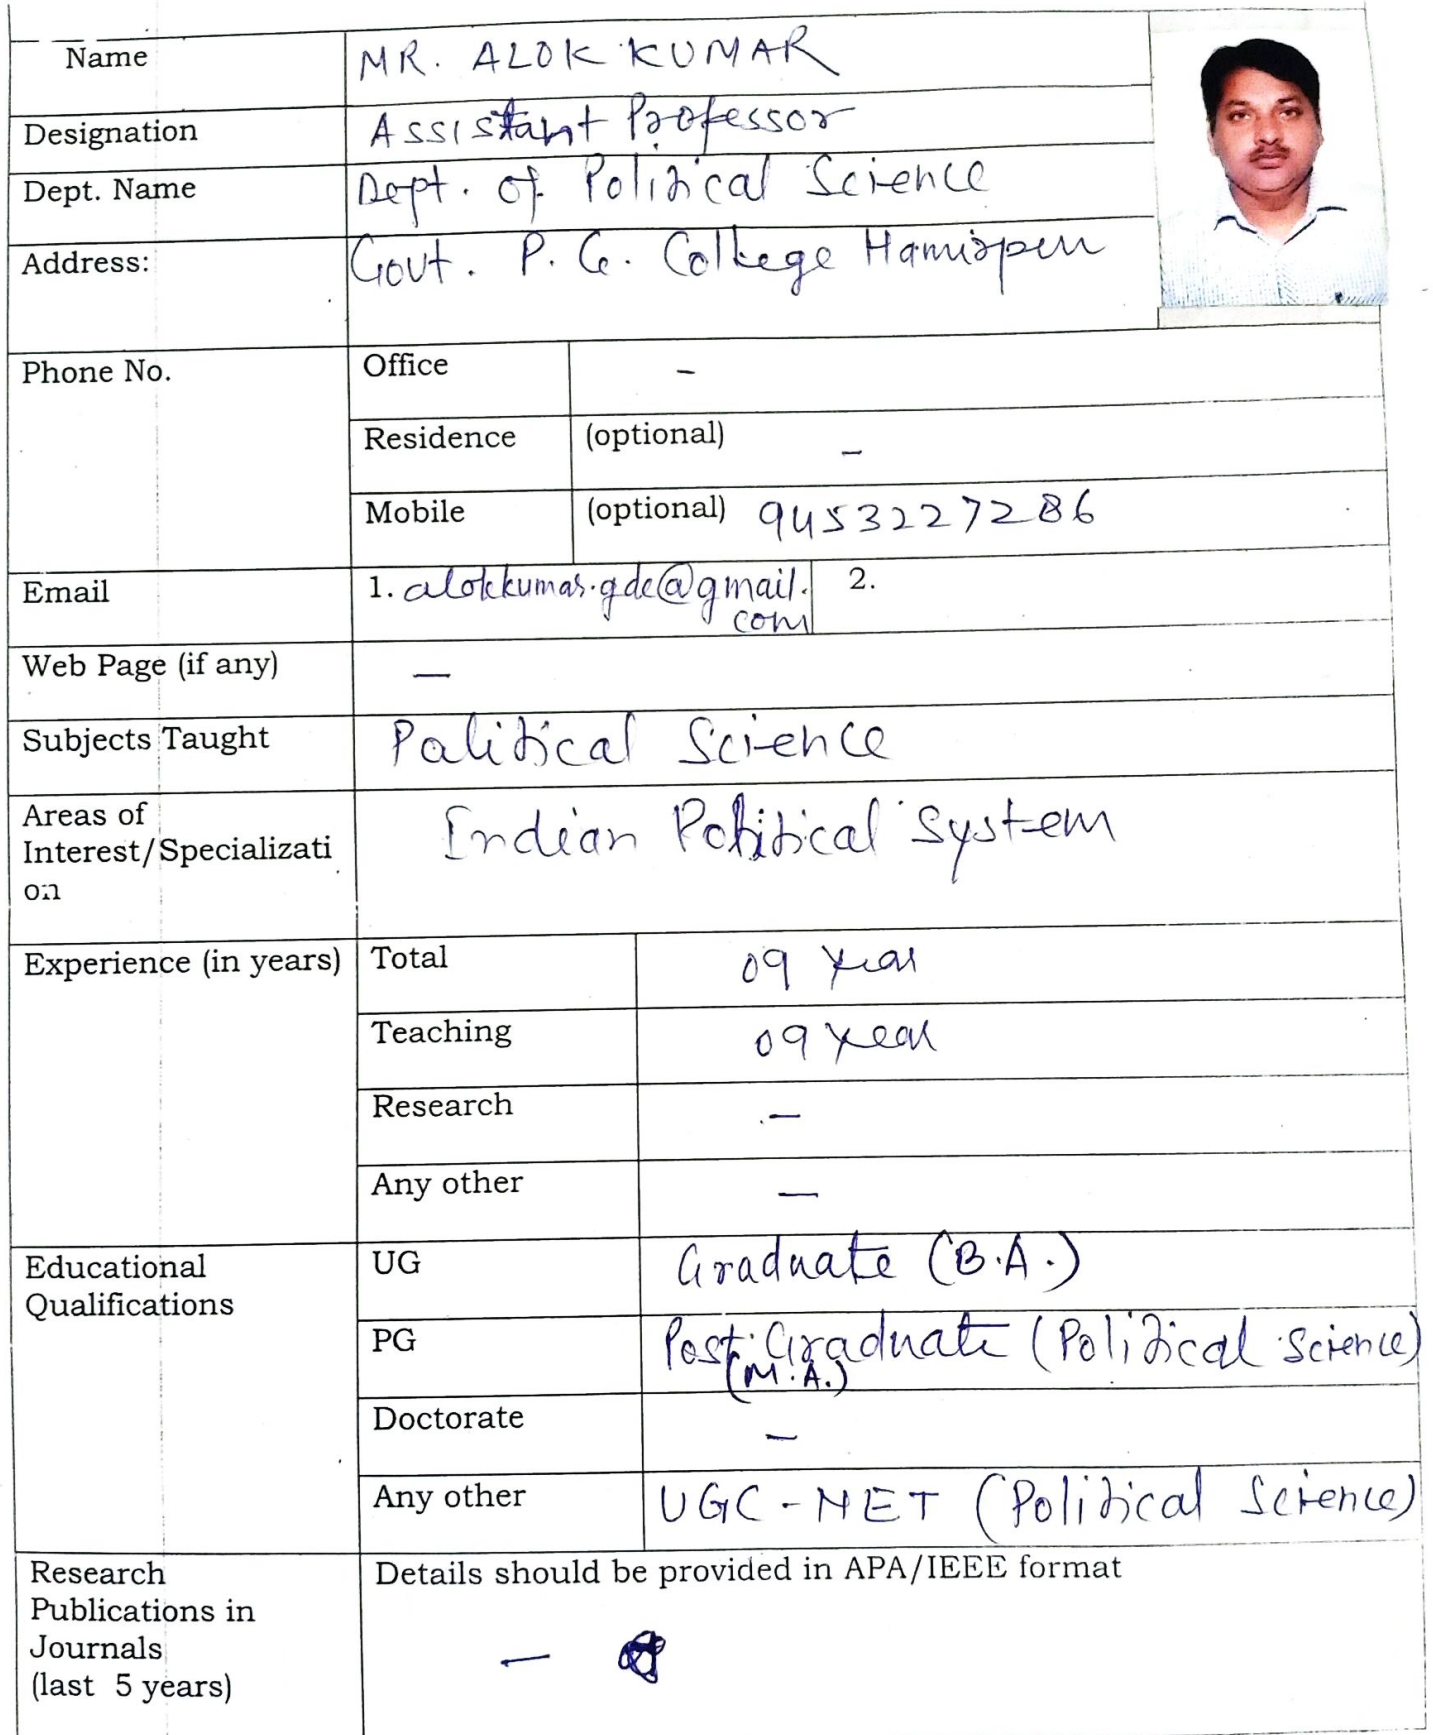 Name MR. ALOK KUMAR
Designation Assistant Professor
Dept. Name Dept. of Political Science
Address: Govt. P. G. College Hamirpur
Phone No. Office -
Residence (optional) -
Mobile (optional) 9453227286
Email 1. alokkumar.gdc@gmail. 2.
com
Web Page (if any) —
Subjects Taught Political Science
Areas of
Interest/Specializati Indian Political System
on
Experience (in years) Total 09 Year
Teaching 09 Year
Research —
Any other —
Educational UG Graduate (B.A.)
Qualifications
PG Post Graduate (Political Science)
(M.A.)
Doctorate —
Any other UGC-NET (Political Science)
Research Details should be provided in APA/IEEE format
Publications in
Journals —
(last 5 years)